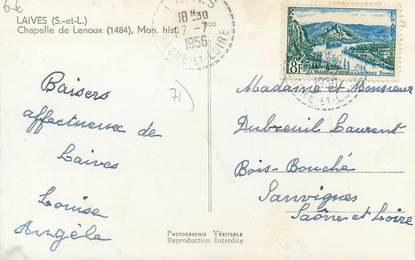 LAIVES (S.-et-L.)
Chapelle de Lenoux (1484), Mon. hist.
18H30
7-7
1956
8F
71
Baisers
affectueux de
Laives
Louise
Angèle
Madame et Monsieur
Dubreuil Laurent
Bois-Bouché
Sanvignes
Saône et Loire
PHOTOGRAPHIE VÉRITABLE
Reproduction Interdite